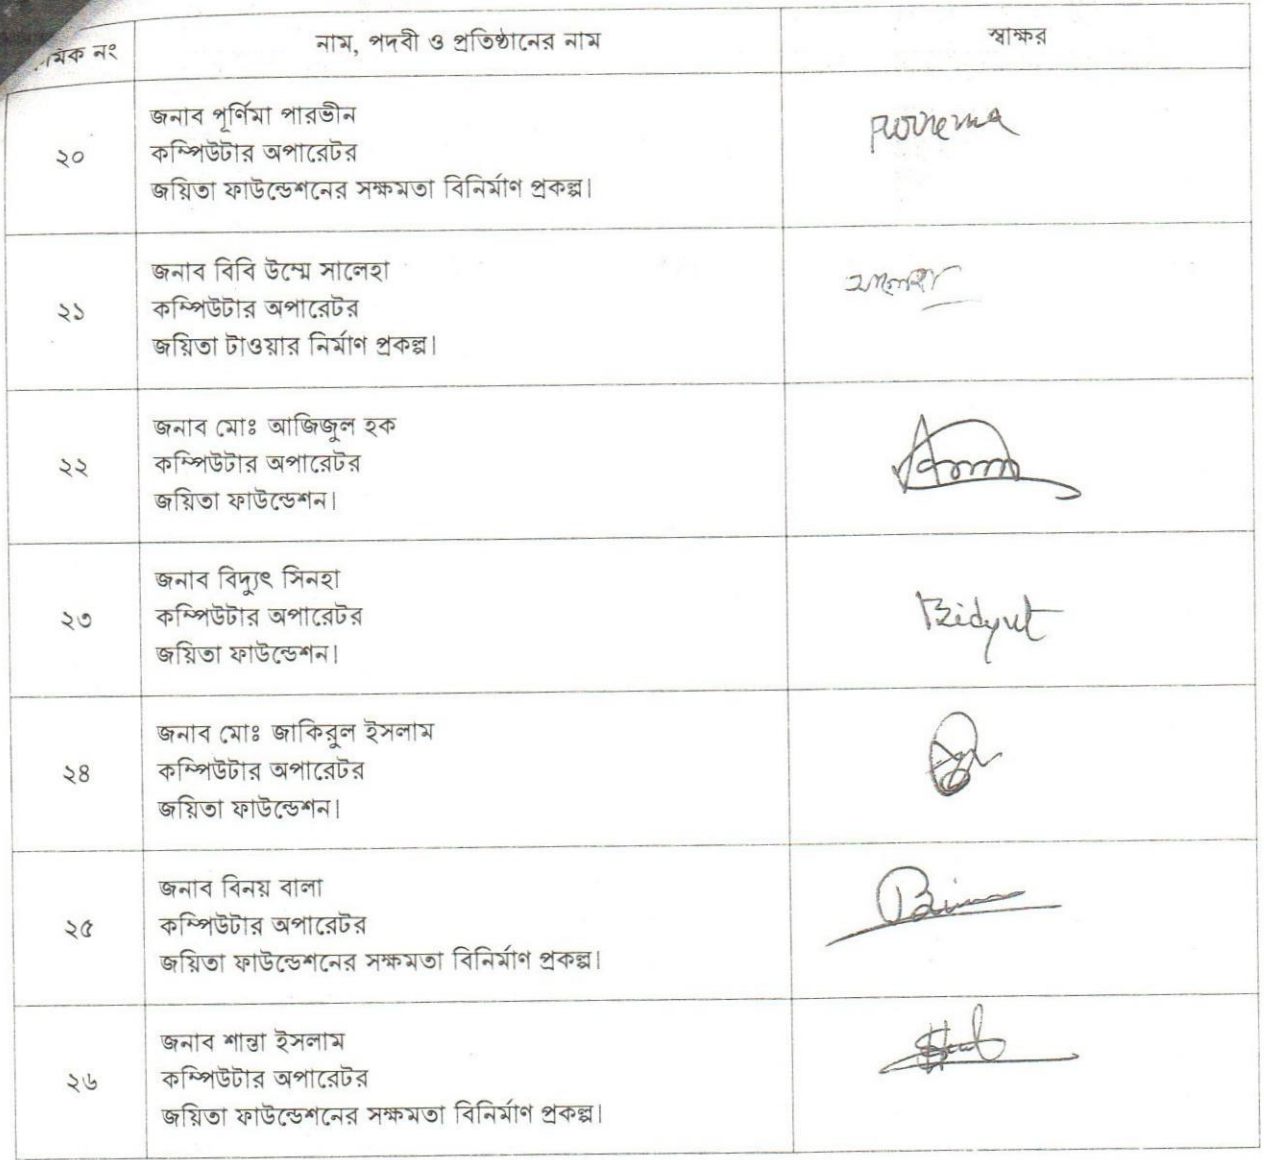 মিক নং নাম, পদবী ও প্রতিষ্ঠানের নাম স্বাক্ষর
জনাব পূর্ণিমা পারভীন
২০ কম্পিউটার অপারেটর
জয়িতা ফাউন্ডেশনের সক্ষমতা বিনির্মাণ প্রকল্প।
জনাব বিবি উম্মে সালেহা সালেহা
২১ কম্পিউটার অপারেটর
জয়িতা টাওয়ার নির্মাণ প্রকল্প।
জনাব মোঃ আজিজুল হক
২২ কম্পিউটার অপারেটর
জয়িতা ফাউন্ডেশন।
জনাব বিদ্যুৎ সিনহা
২৩ কম্পিউটার অপারেটর Bidyut
জয়িতা ফাউন্ডেশন।
জনাব মোঃ জাকিরুল ইসলাম
২৪ কম্পিউটার অপারেটর
জয়িতা ফাউন্ডেশন।
জনাব বিনয় বালা
২৫ কম্পিউটার অপারেটর
জয়িতা ফাউন্ডেশনের সক্ষমতা বিনির্মাণ প্রকল্প।
জনাব শান্তা ইসলাম
২৬ কম্পিউটার অপারেটর
জয়িতা ফাউন্ডেশনের সক্ষমতা বিনির্মাণ প্রকল্প।